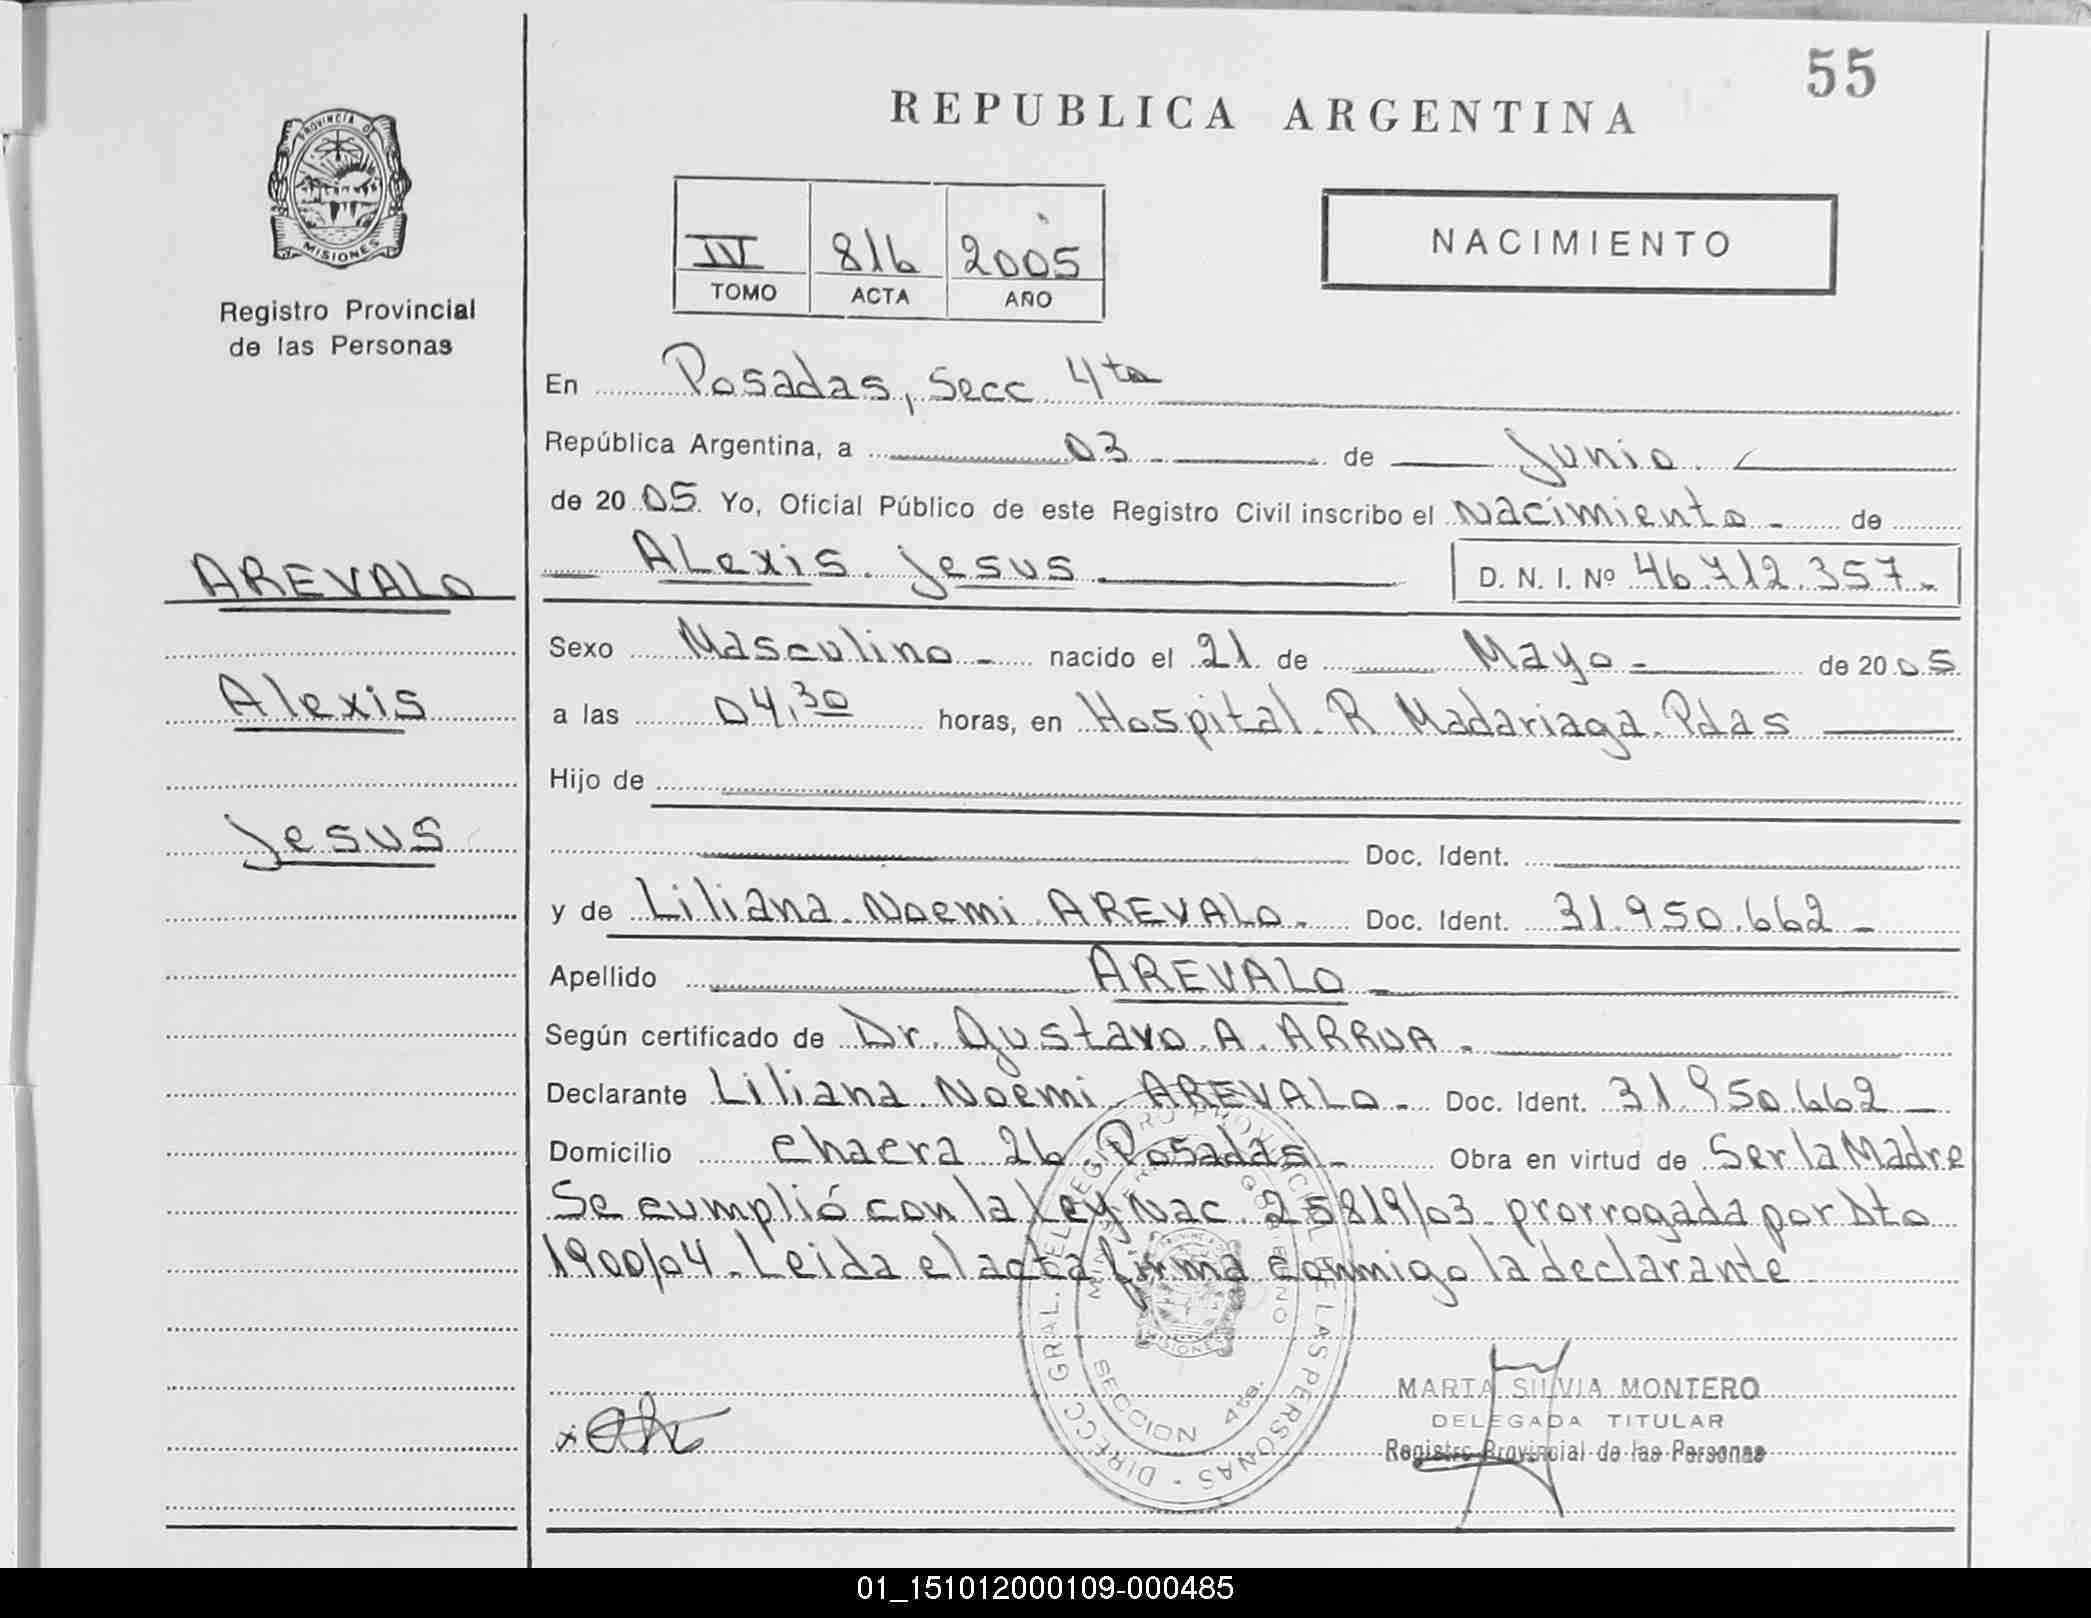 55
REPUBLICA ARGENTINA
PROVINCIA DE
MISIONES
Registro Provincial
de las Personas
IV 816 2005
TOMO ACTA AÑO
NACIMIENTO
En Posadas, Secc 4ta
República Argentina, a 03 de Junio
de 2005. Yo, Oficial Público de este Registro Civil inscribo el Nacimiento - de
AREVALO
Alexis Jesus D. N. I. Nº 46.712.357.-
Sexo Masculino - nacido el 21 de Mayo - de 2005
Alexis
a las 04,30 horas, en Hospital R Madariaga. Pdas
Hijo de
Jesus
Doc. Ident.
y de Liliana Noemi AREVALO.- Doc. Ident. 31.950.662 -
Apellido AREVALO
Según certificado de Dr. Gustavo A. ARRUA.
Declarante Liliana Noemi AREVALO.- Doc. Ident. 31.950.662 -
Domicilio chacra 26 Posadas.- Obra en virtud de Ser la Madre
Se cumplió con la Ley Nac. 25819/03 prorrogada por Dto
1900/04. Leida el acta firma conmigo la declarante
DIRECC. GRAL. DEL REGISTRO PROVINCIAL DE LAS PERSONAS
GOBIERNO
MISIONES
SECCION 4ta.
MARTA SILVIA MONTERO
DELEGADA TITULAR
Registro Provincial de las Personas
01_151012000109-000485